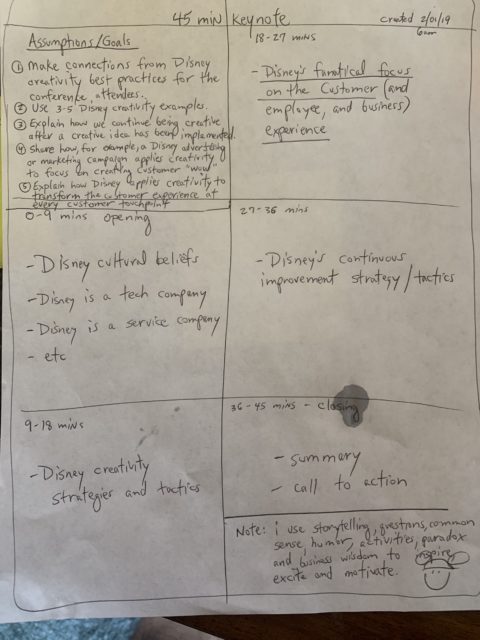 45 min Keynote
created 2/01/19
6am
Assumptions/Goals
① Make connections from Disney
creativity best practices for the
conference attendees.
② Use 3-5 Disney creativity examples.
③ Explain how we continue being creative
after a creative idea has been implemented.
④ Share how, for example, a Disney advertising
or marketing campaign applies creativity
to focus on creating customer "wow"
⑤ Explain how Disney applies creativity to
transform the customer experience at
every customer touchpoint
0-9 mins opening
- Disney cultural beliefs
- Disney is a tech company
- Disney is a service company
- etc
9-18 mins
- Disney creativity
strategies and tactics
18-27 mins
- Disney's fanatical focus
on the Customer (and
employee, and business)
experience
27-36 mins
- Disney's continuous
improvement strategy/tactics
36-45 mins - closing
- summary
- call to action
Note: i use storytelling, questions, common
sense, humor, activities, paradox
and business wisdom to inspire,
excite and motivate.